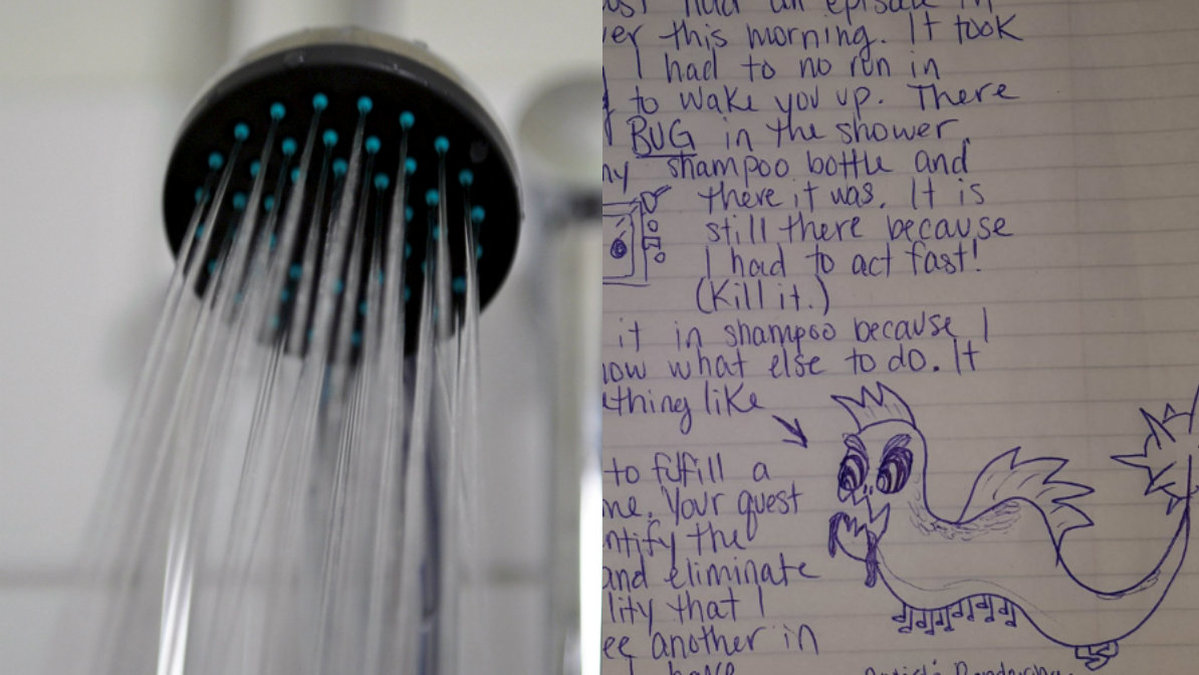 had an episode in
this morning. It took
I had to no run in
to wake you up. There
BUG in the shower.
shampoo bottle and
there it was. It is
still there because
I had to act fast!
(Kill it.)
it in shampoo because I
what else to do. It
like
to fulfill a
Your quest
the
and eliminate
that I
another in